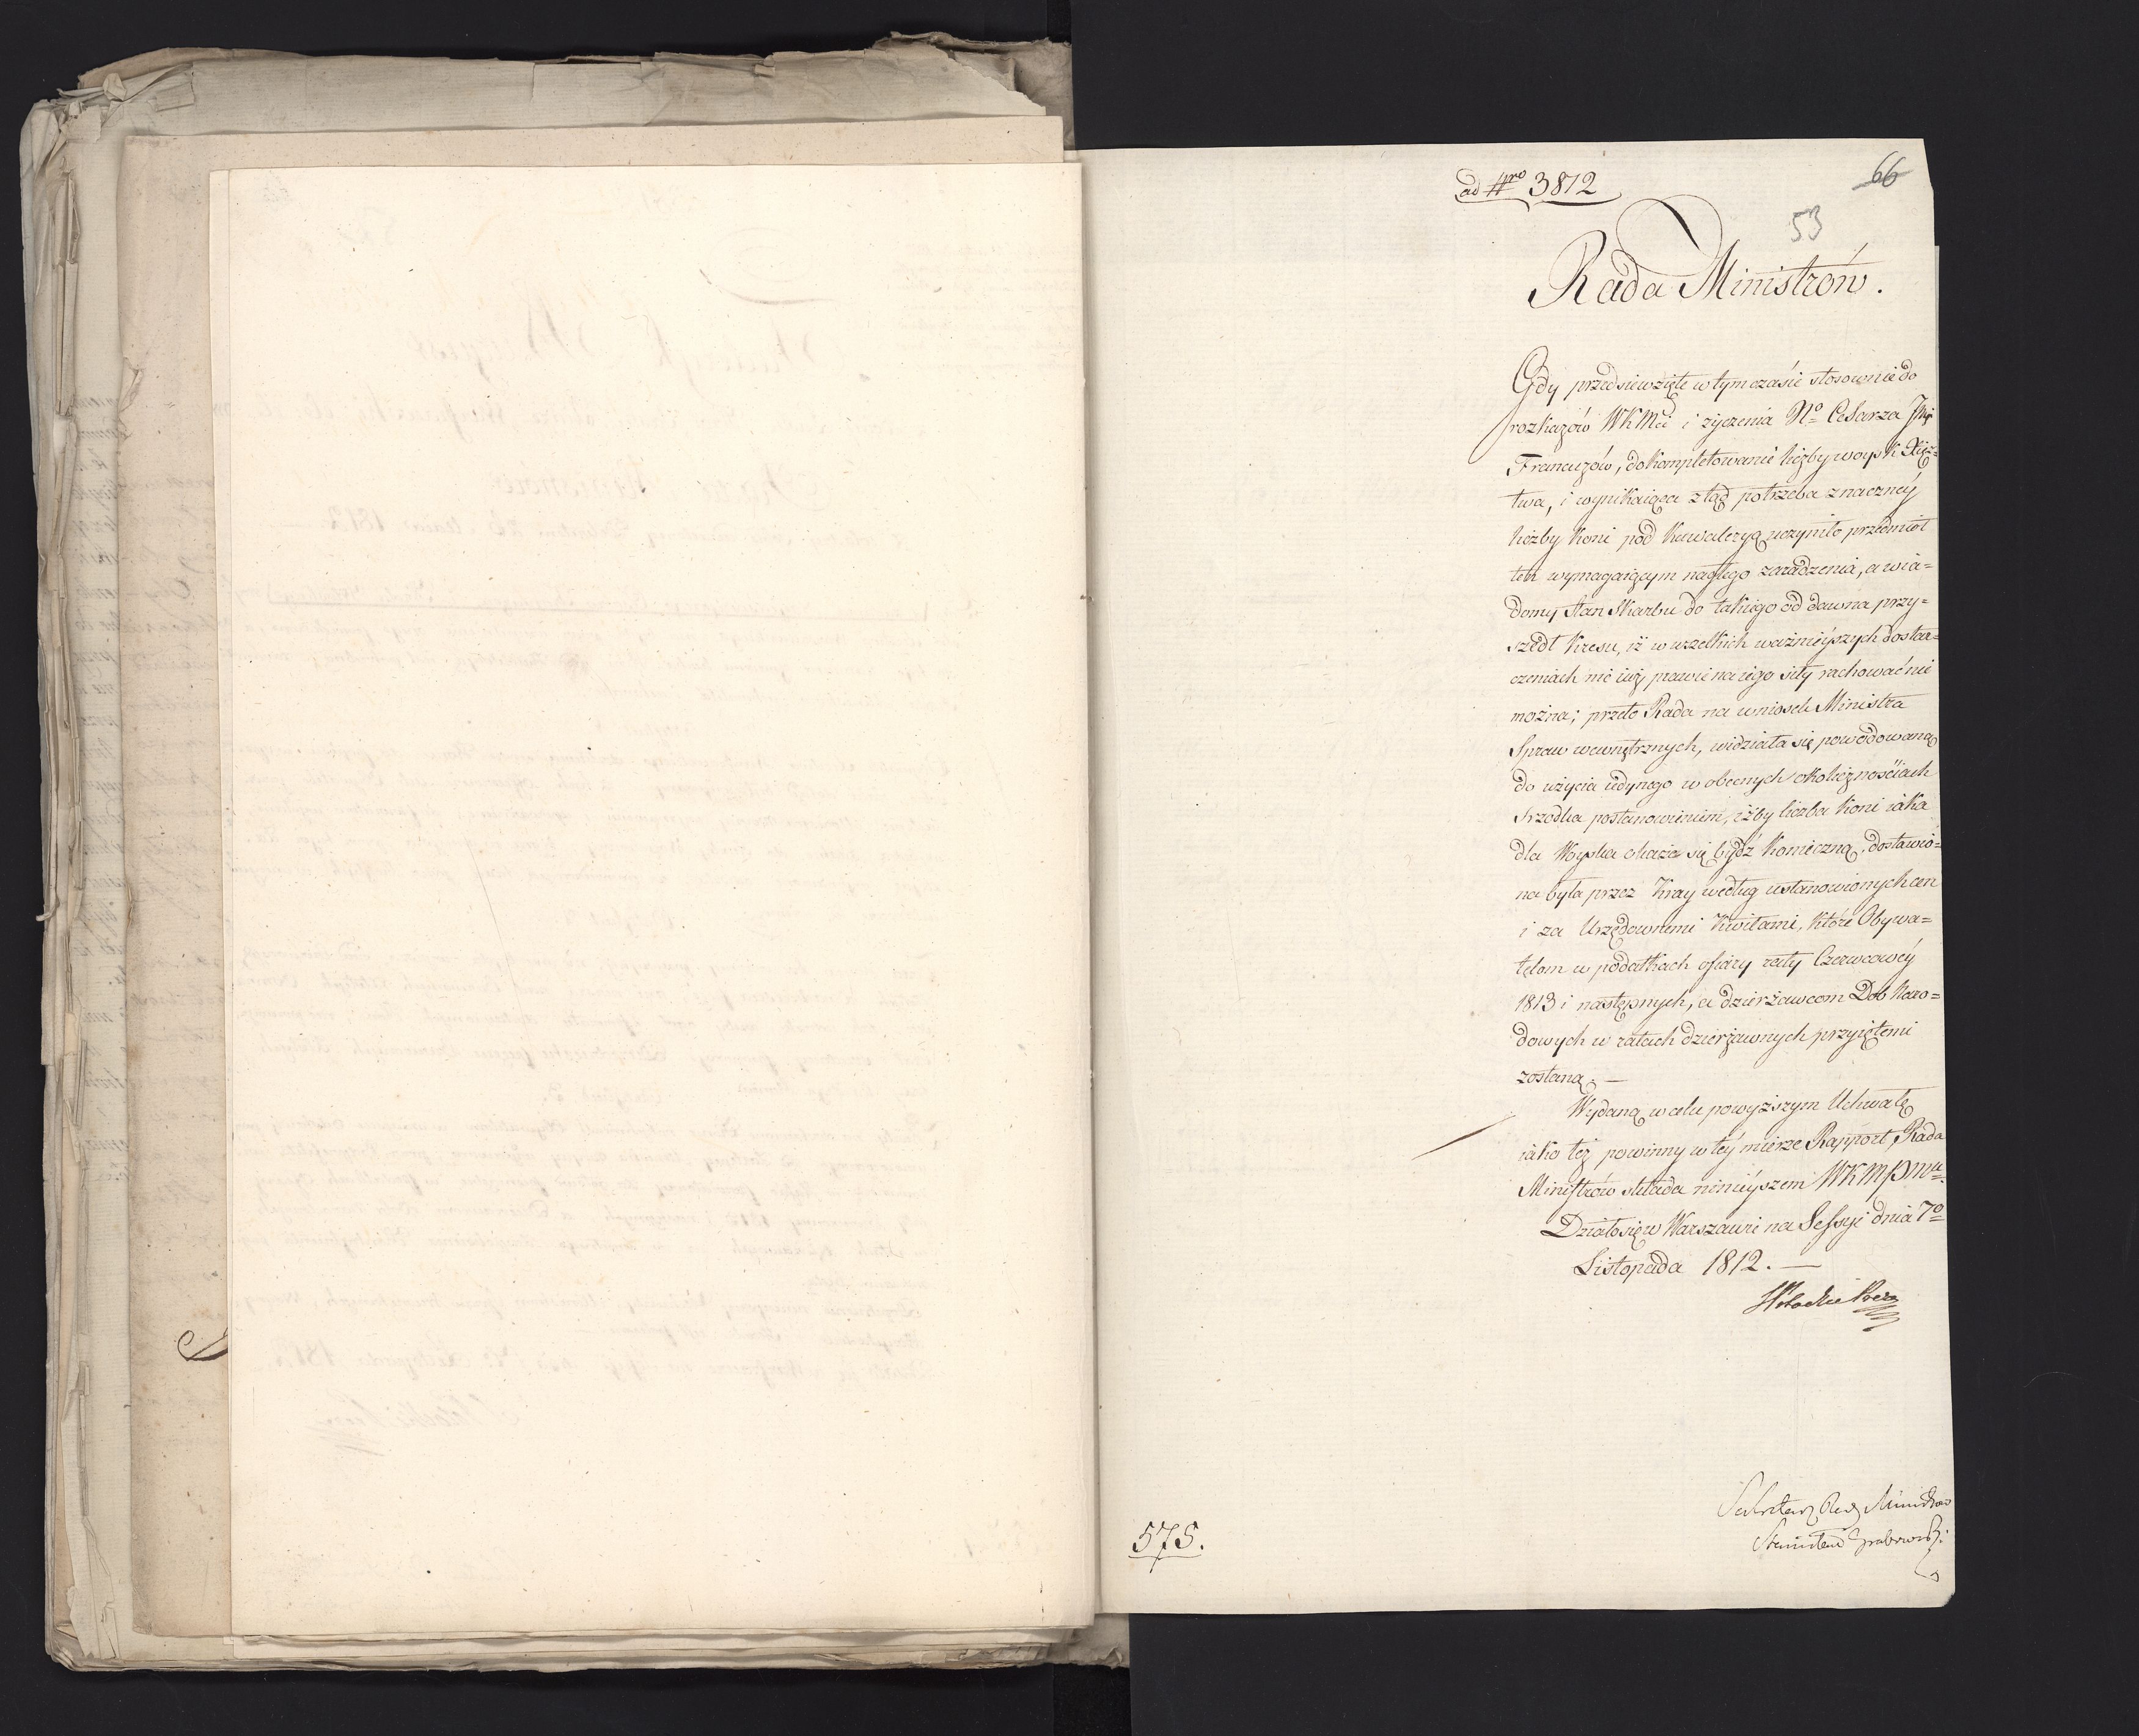 ad Nro 3812
66
53
Rada Ministrów.
Gdy przedsiewzięte w tym czasie stosownie do
rozkazów WKMci i życzenia No Cesarza Jmći
Francuzów, dokompletowanie liczby woysk Xięz=
twa, i wynikaiąca ztąd potrzeba znaczney
liczby koni pod kawaleryą uczyniło przedmiot
ten wymagaiącym nagłego zaradzenia, a wia=
domy stan Skarbu do takiego od dawna przy=
szedł kresu, iż w wszelkich ważnieyszych dostar=
czeniach nic iuż prawie na iego siły rachować nie
można; przeto Rada na wniosek Ministra
Spraw wewnętrznych, widziała się powodowaną
do użycia iedynego w obecnych okolicznościach
srzodka postanowieniem, iżby liczba koni iaka
dla Woyska okaże się bydź konieczną, dostawio=
na była przez Kray według ustanowionych cen
i za Urzędownemi Kwitami, które Obywa=
telom w podatkach ofiary raty Czerwcowey
1813 i następnych, a dzierżawcom Dóbr Naro=
dowych w ratach dzierżawnych przyiętemi
zostaną. —
Wydaną w celu powyższym Uchwałę
iako też powinny w tey mierze Rapport, Rada
Ministrów składa ninieyszem WKMPMu.
Działo się w Warszawie na Sessyi dnia 7o
Listopada 1812. —
Sekretarz Rady Ministrów
Stanisław Grabowski.
575.